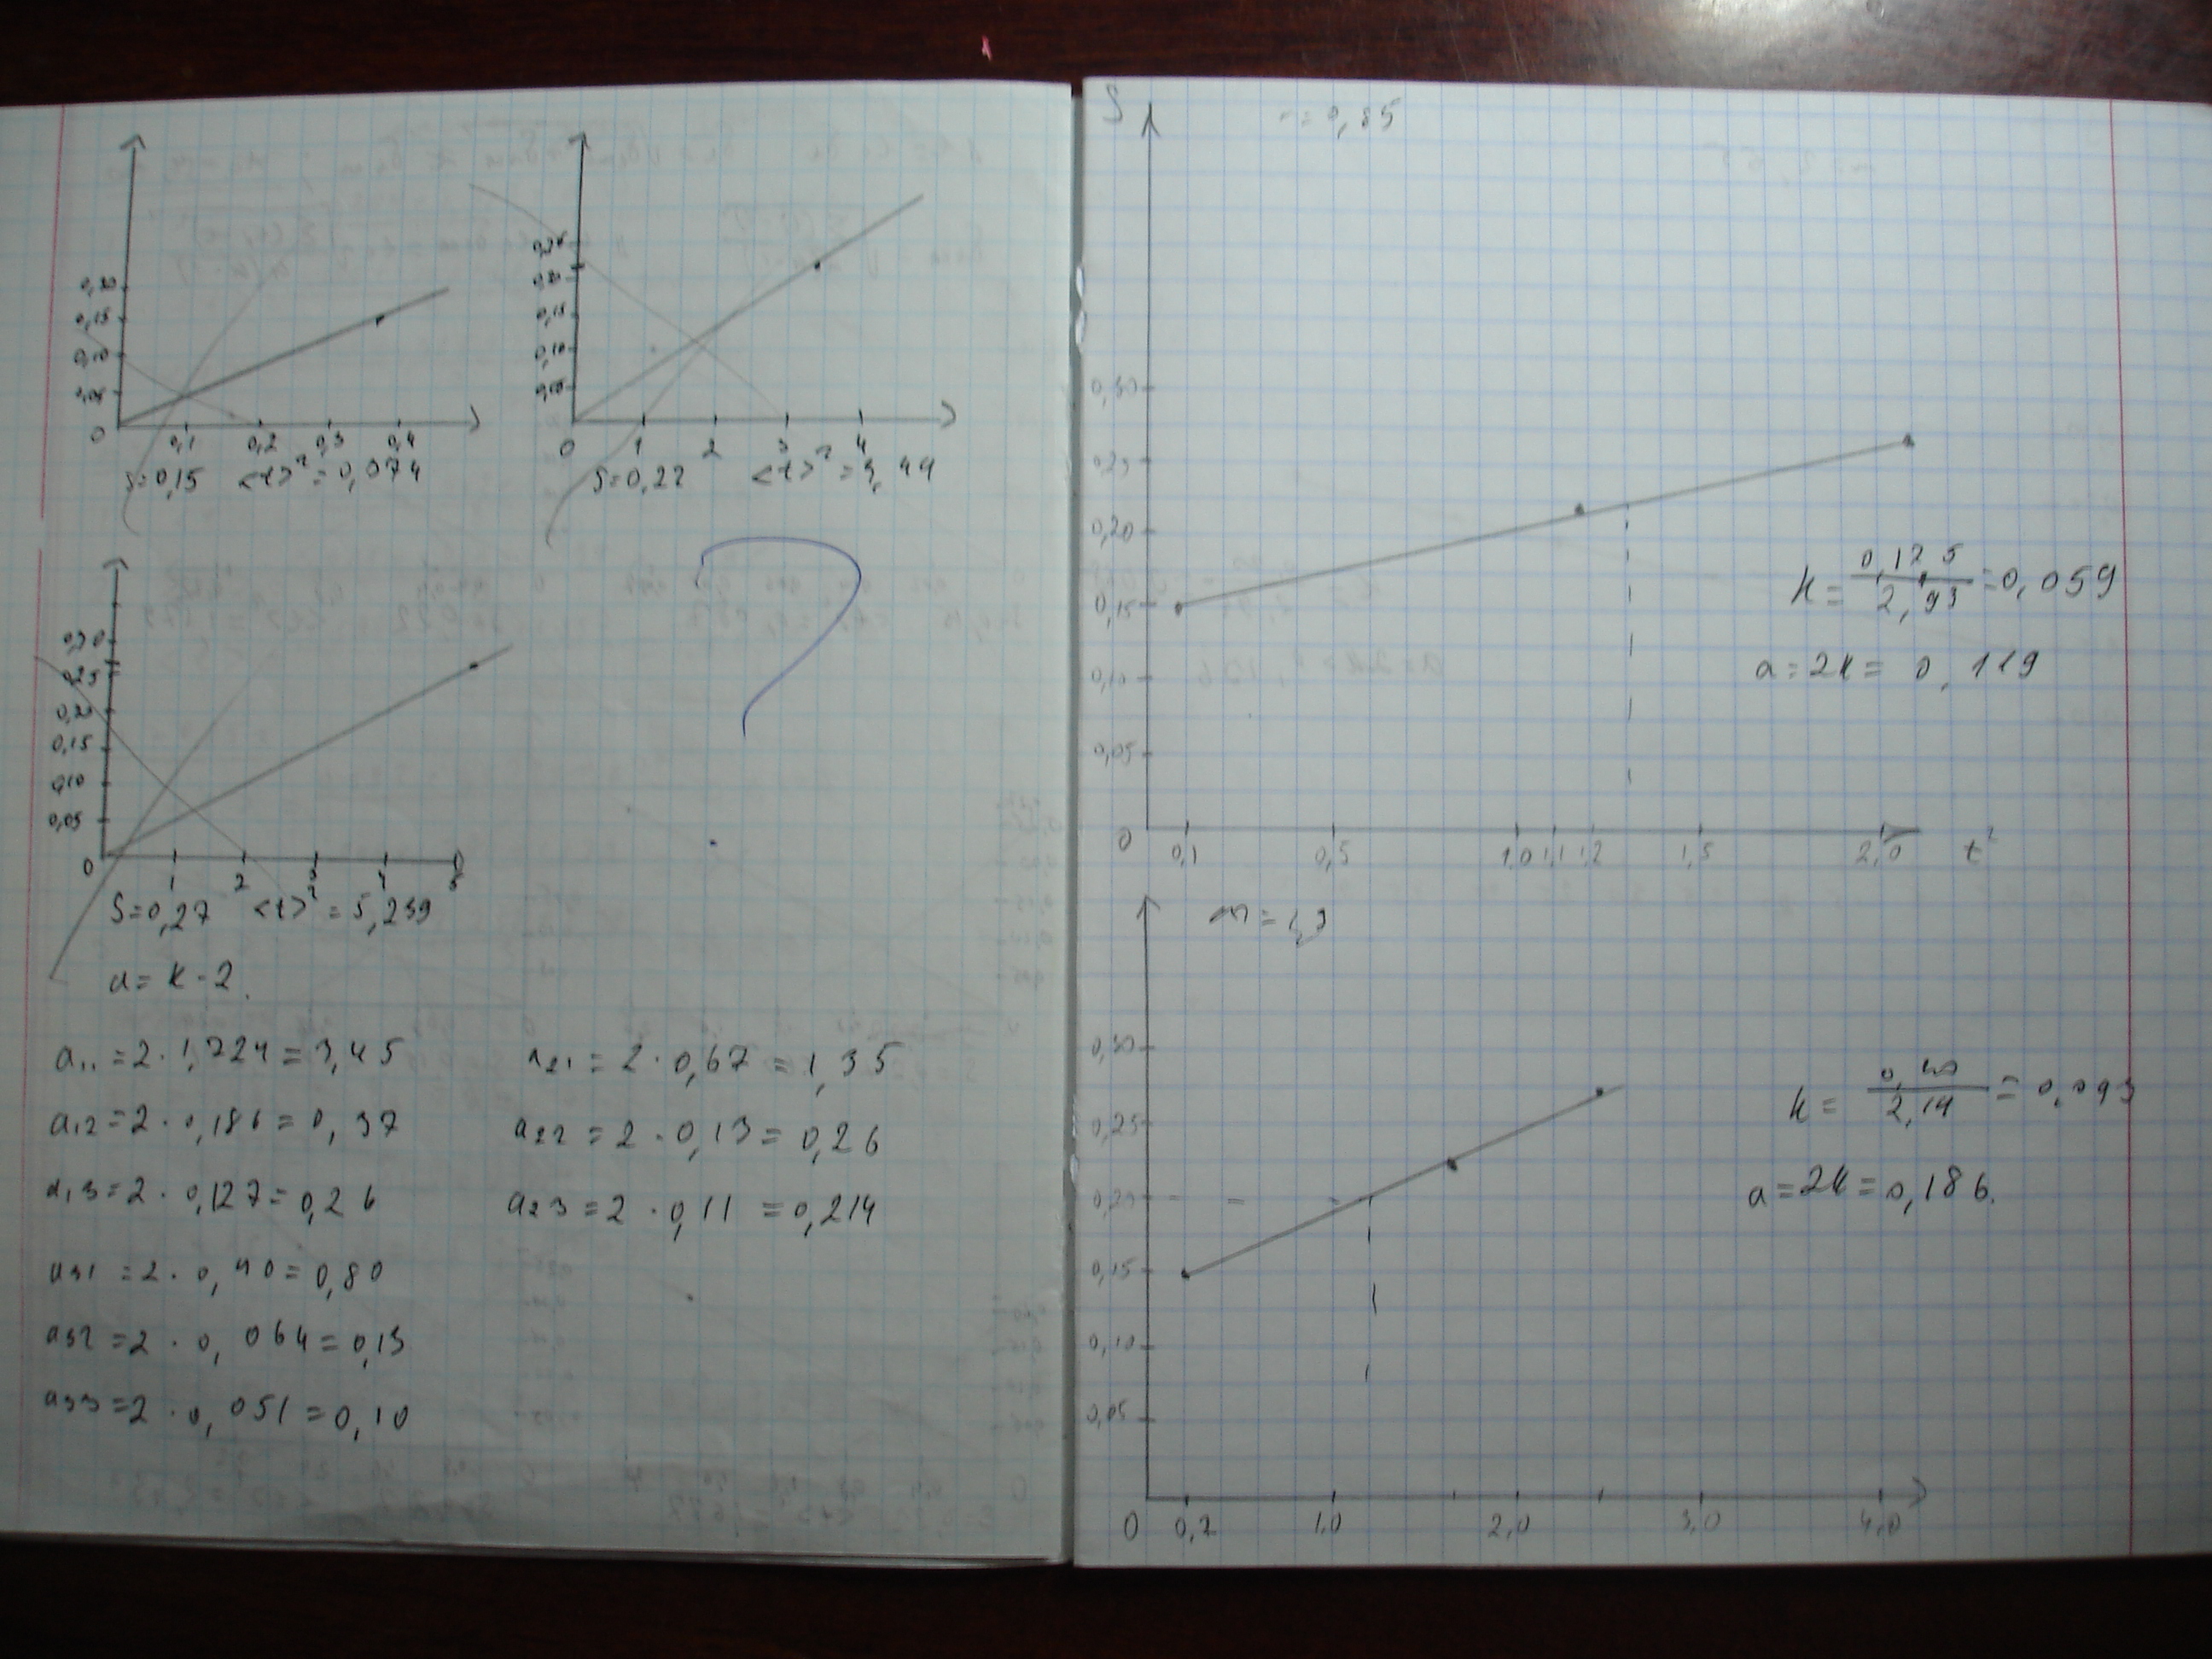 0,20
0,15
0,10
0,05
0 0,1 0,2 0,3 0,4
S=0,15 <t>²=0,074
0,20
0,15
0,10
0,05
0 1 2 3 4
S=0,22 <t>²=3,44
0,30
0,25
0,20
0,15
0,10
0,05
0 1 2 3 4 5
S=0,27 <t>²=5,239
a=k·2.
a₁₁=2·1,724=3,45
a₁₂=2·0,186=0,37
a₁₃=2·0,127=0,26
a₃₁=2·0,40=0,80
a₃₂=2·0,064=0,13
a₃₃=2·0,051=0,10
a₂₁=2·0,67=1,35
a₂₂=2·0,13=0,26
a₂₃=2·0,11=0,214
?
S
0,30
0,25
0,20
0,15
0,10
0,05
0 0,1 0,5 1,0 1,1 1,2 1,5 2,0 t²
k=0,175/2,93=0,059
a=2k=0,119
0,30
0,25
0,20
0,15
0,10
0,05
0 0,2 1,0 2,0 3,0 4,0
=0,093
a=2k=0,186.